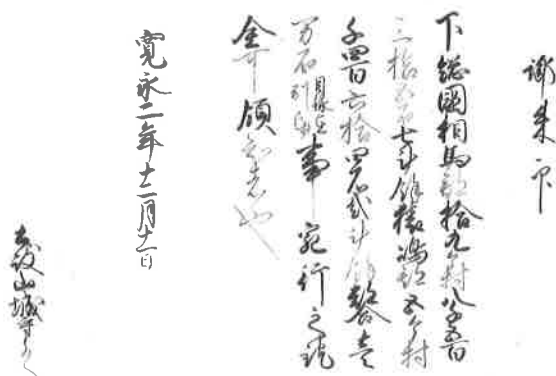 御朱印
下総國相馬郡拾九ケ村八千五百
三拾五石七斗餘猿嶋郡五ケ村
千四百六拾四石弐斗餘都合壱
万石 目録在別紙 事宛行之訖
全可領知者也
寛永二年十二月十一日
土岐山城守とのへ